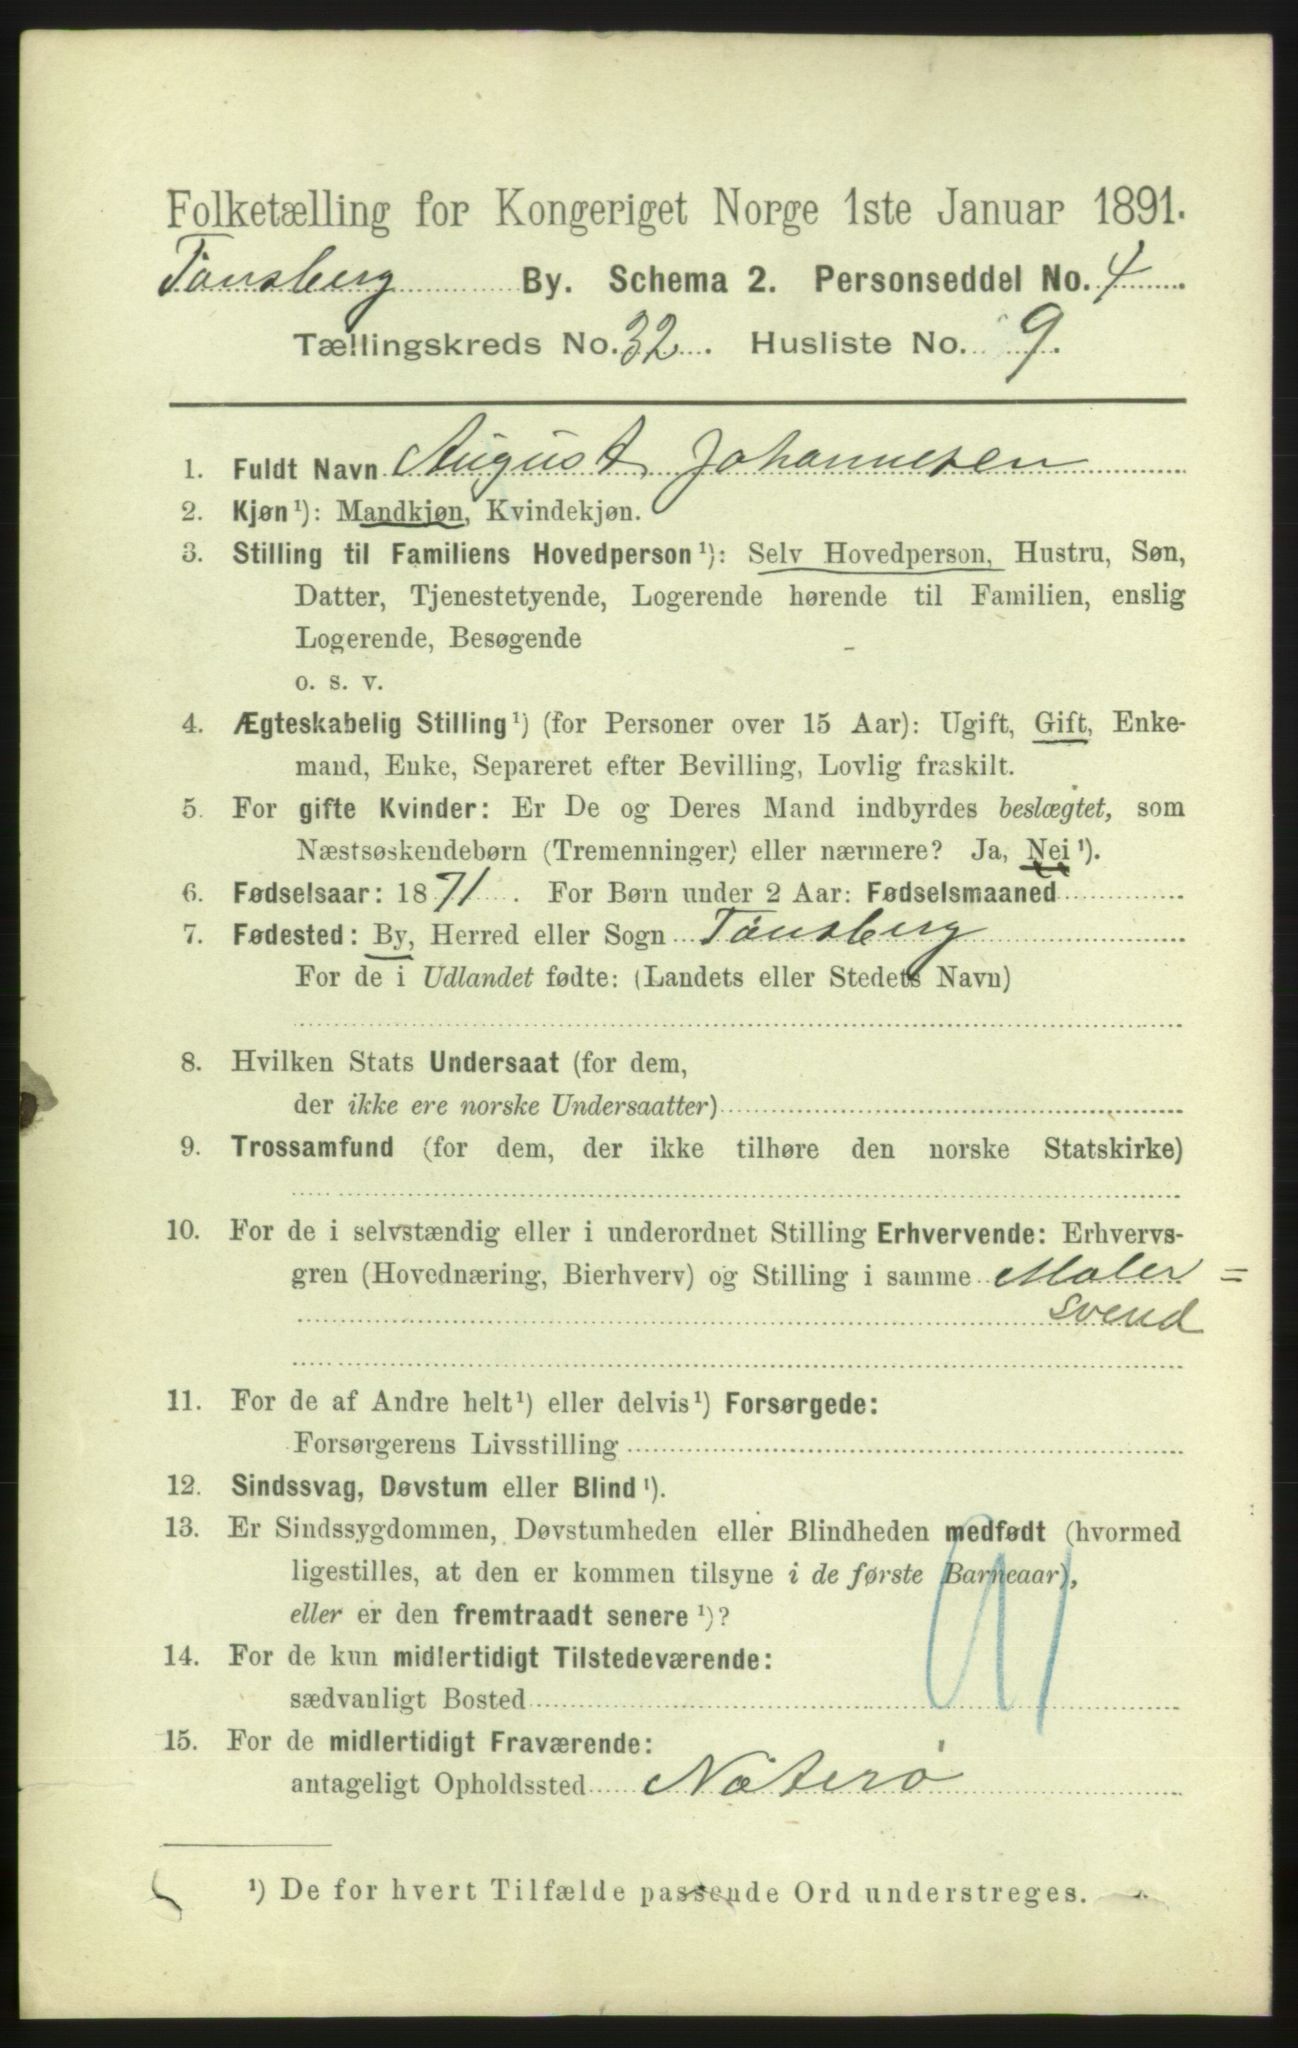 Folketælling for Kongeriget Norge 1ste Januar 1891.
Tønsberg By. Schema 2. Personseddel No. 4
Tællingskreds No. 32. Husliste No. 9.
1. Fuldt Navn August Johannesen
2. Kjøn¹): Mandkjøn, Kvindekjøn.
3. Stilling til Familiens Hovedperson¹): Selv Hovedperson, Hustru, Søn,
Datter, Tjenestetyende, Logerende hørende til Familien, enslig
Logerende, Besøgende
o. s. v.
4. Ægteskabelig Stilling¹) (for Personer over 15 Aar): Ugift, Gift, Enke-
mand, Enke, Separeret efter Bevilling, Lovlig fraskilt.
5. For gifte Kvinder: Er De og Deres Mand indbyrdes beslægtet, som
Næstsøskendebørn (Tremenninger) eller nærmere? Ja, Nei¹).
6. Fødselsaar: 1871. For Børn under 2 Aar: Fødselsmaaned
7. Fødested: By, Herred eller Sogn Tønsberg
For de i Udlandet fødte: (Landets eller Stedets Navn)
8. Hvilken Stats Undersaat (for dem,
der ikke ere norske Undersaatter)
9. Trossamfund (for dem, der ikke tilhøre den norske Statskirke)
10. For de i selvstændig eller i underordnet Stilling Erhvervende: Erhvervs-
gren (Hovednæring, Bierhverv) og Stilling i samme Maler=
svend
11. For de af Andre helt¹) eller delvis¹) Forsørgede:
Forsørgerens Livsstilling
12. Sindssvag, Døvstum eller Blind¹).
13. Er Sindssygdommen, Døvstumheden eller Blindheden medfødt (hvormed
ligestilles, at den er kommen tilsyne i de første Barneaar),
eller er den fremtraadt senere¹)?
14. For de kun midlertidigt Tilstedeværende:
sædvanligt Bosted
15. For de midlertidigt Fraværende:
antageligt Opholdssted Nøterø
¹) De for hvert Tilfælde passende Ord understreges.